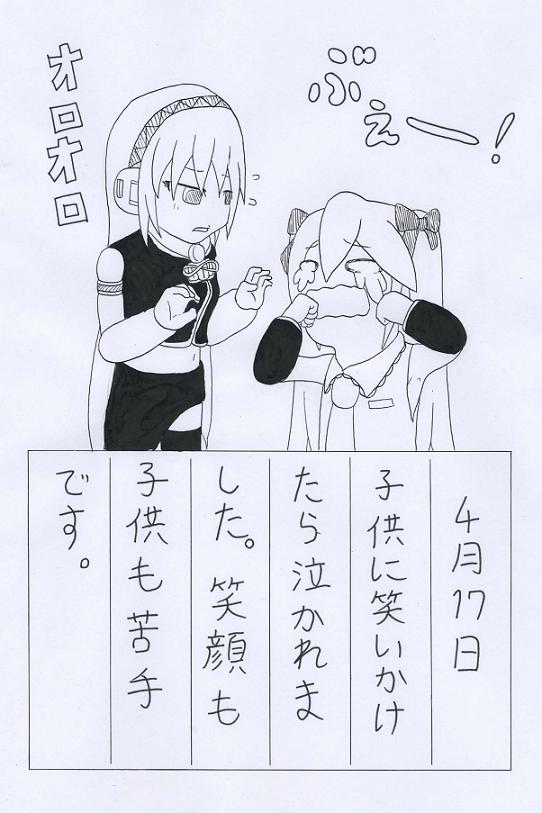 ぶぇー!
オロオロ
4月17日
子供に笑いかけ
たら泣かれま
した。笑顔も
子供も苦手
です。